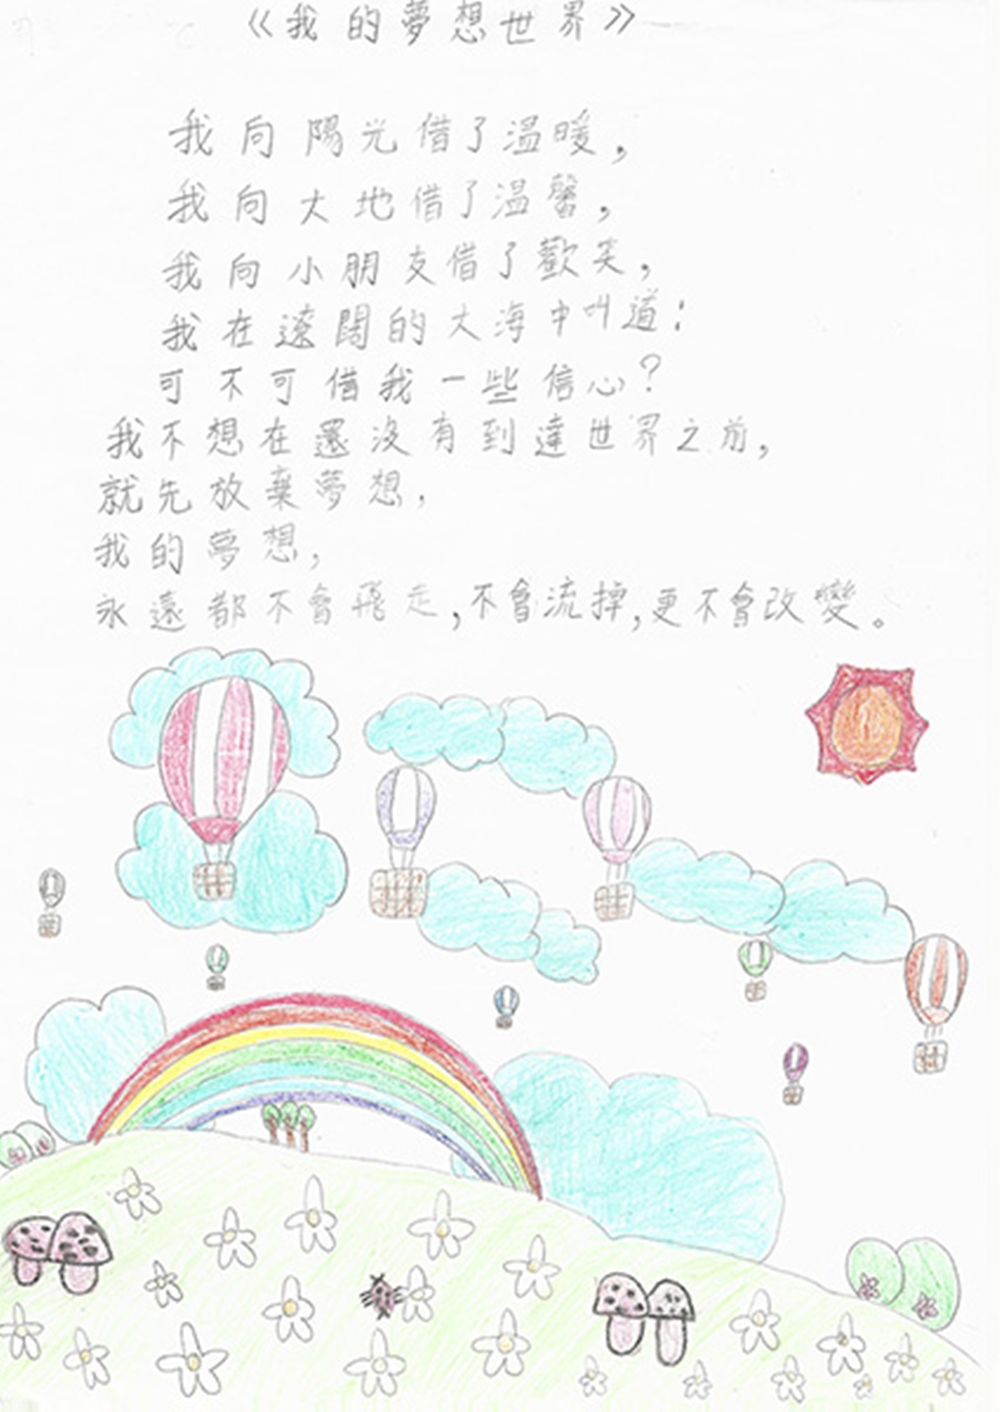 《我的夢想世界》
我向陽光借了溫暖，
我向大地借了溫馨，
我向小朋友借了歡笑，
我在遼闊的大海中叫道：
可不可借我一些信心？
我不想在還沒有到達世界之前，
就先放棄夢想，
我的夢想，
永遠都不會飛走，不會流掉，更不會改變。